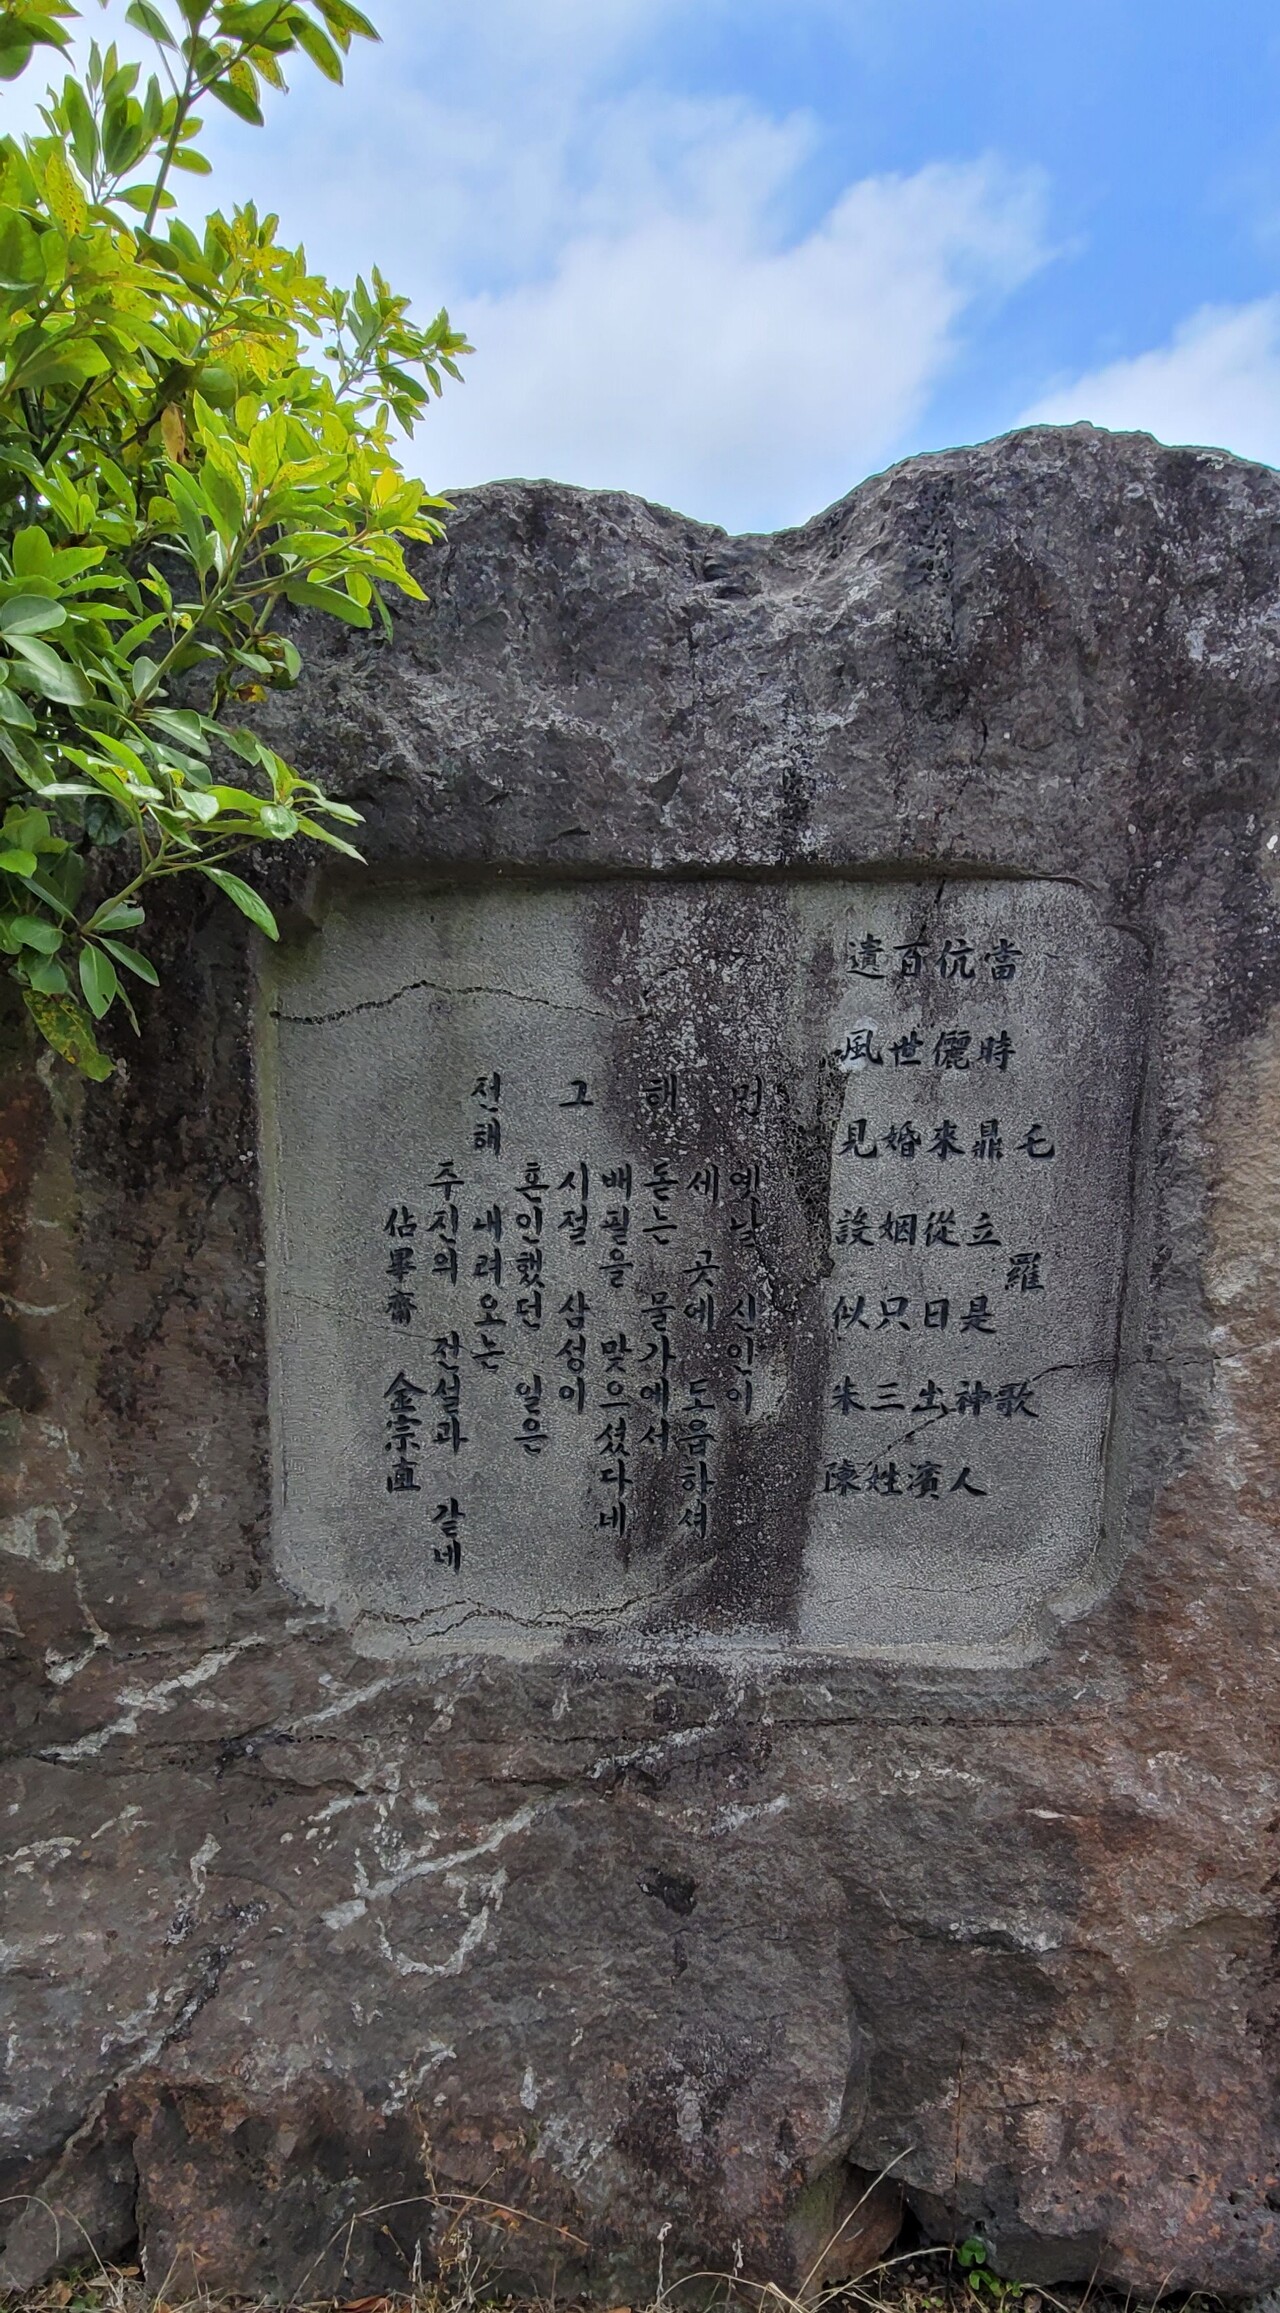 毛羅歌
當時鼎立是神人
伉儷來從日出濱
百世婚姻只三姓
遺風見說似朱陳
먼 옛날 신인이
세 곳에 도읍하셔
해 돋는 물가에서
배필을 맞으셨다네
그 시절 삼성이
혼인했던 일은
전해 내려오는
주진의 전설과 같네
佔畢齋 金宗直